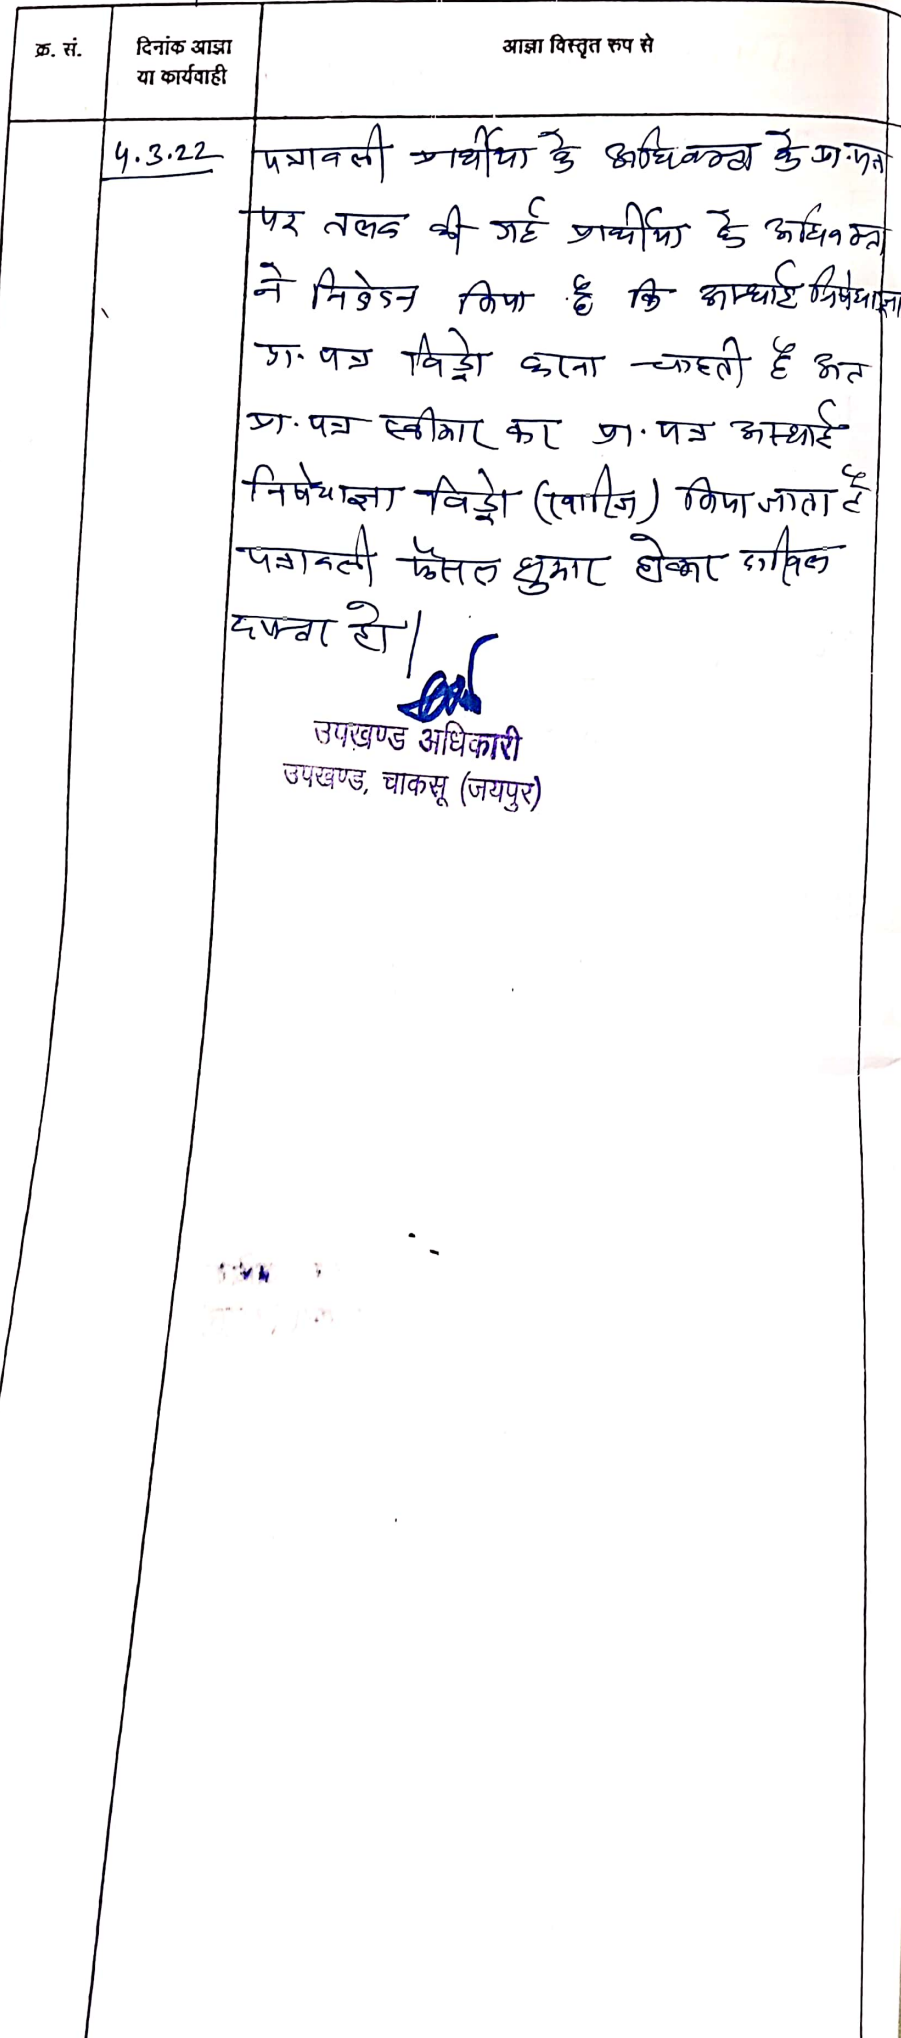 क्र. सं.
दिनांक आज्ञा
या कार्यवाही
आज्ञा विस्तृत रुप से
4.3.22
पत्रावली प्रार्थीया के अधिवक्ता के प्रा.पत्र
पर तलब की गई प्रार्थीया के अधिवक्ता
ने निवेदन किया है कि अस्थाई निषेधाज्ञा
प्रा. पत्र विड्रो करना चाहती है अत
प्रा. पत्र स्वीकार कर प्रा. पत्र अस्थाई
निषेधाज्ञा विड्रो (खारिज) किया जाता है
पत्रावली फैसल शुमार होकर दाखिल
दफ्तर हो।
उपखण्ड अधिकारी
उपखण्ड, चाकसू (जयपुर)